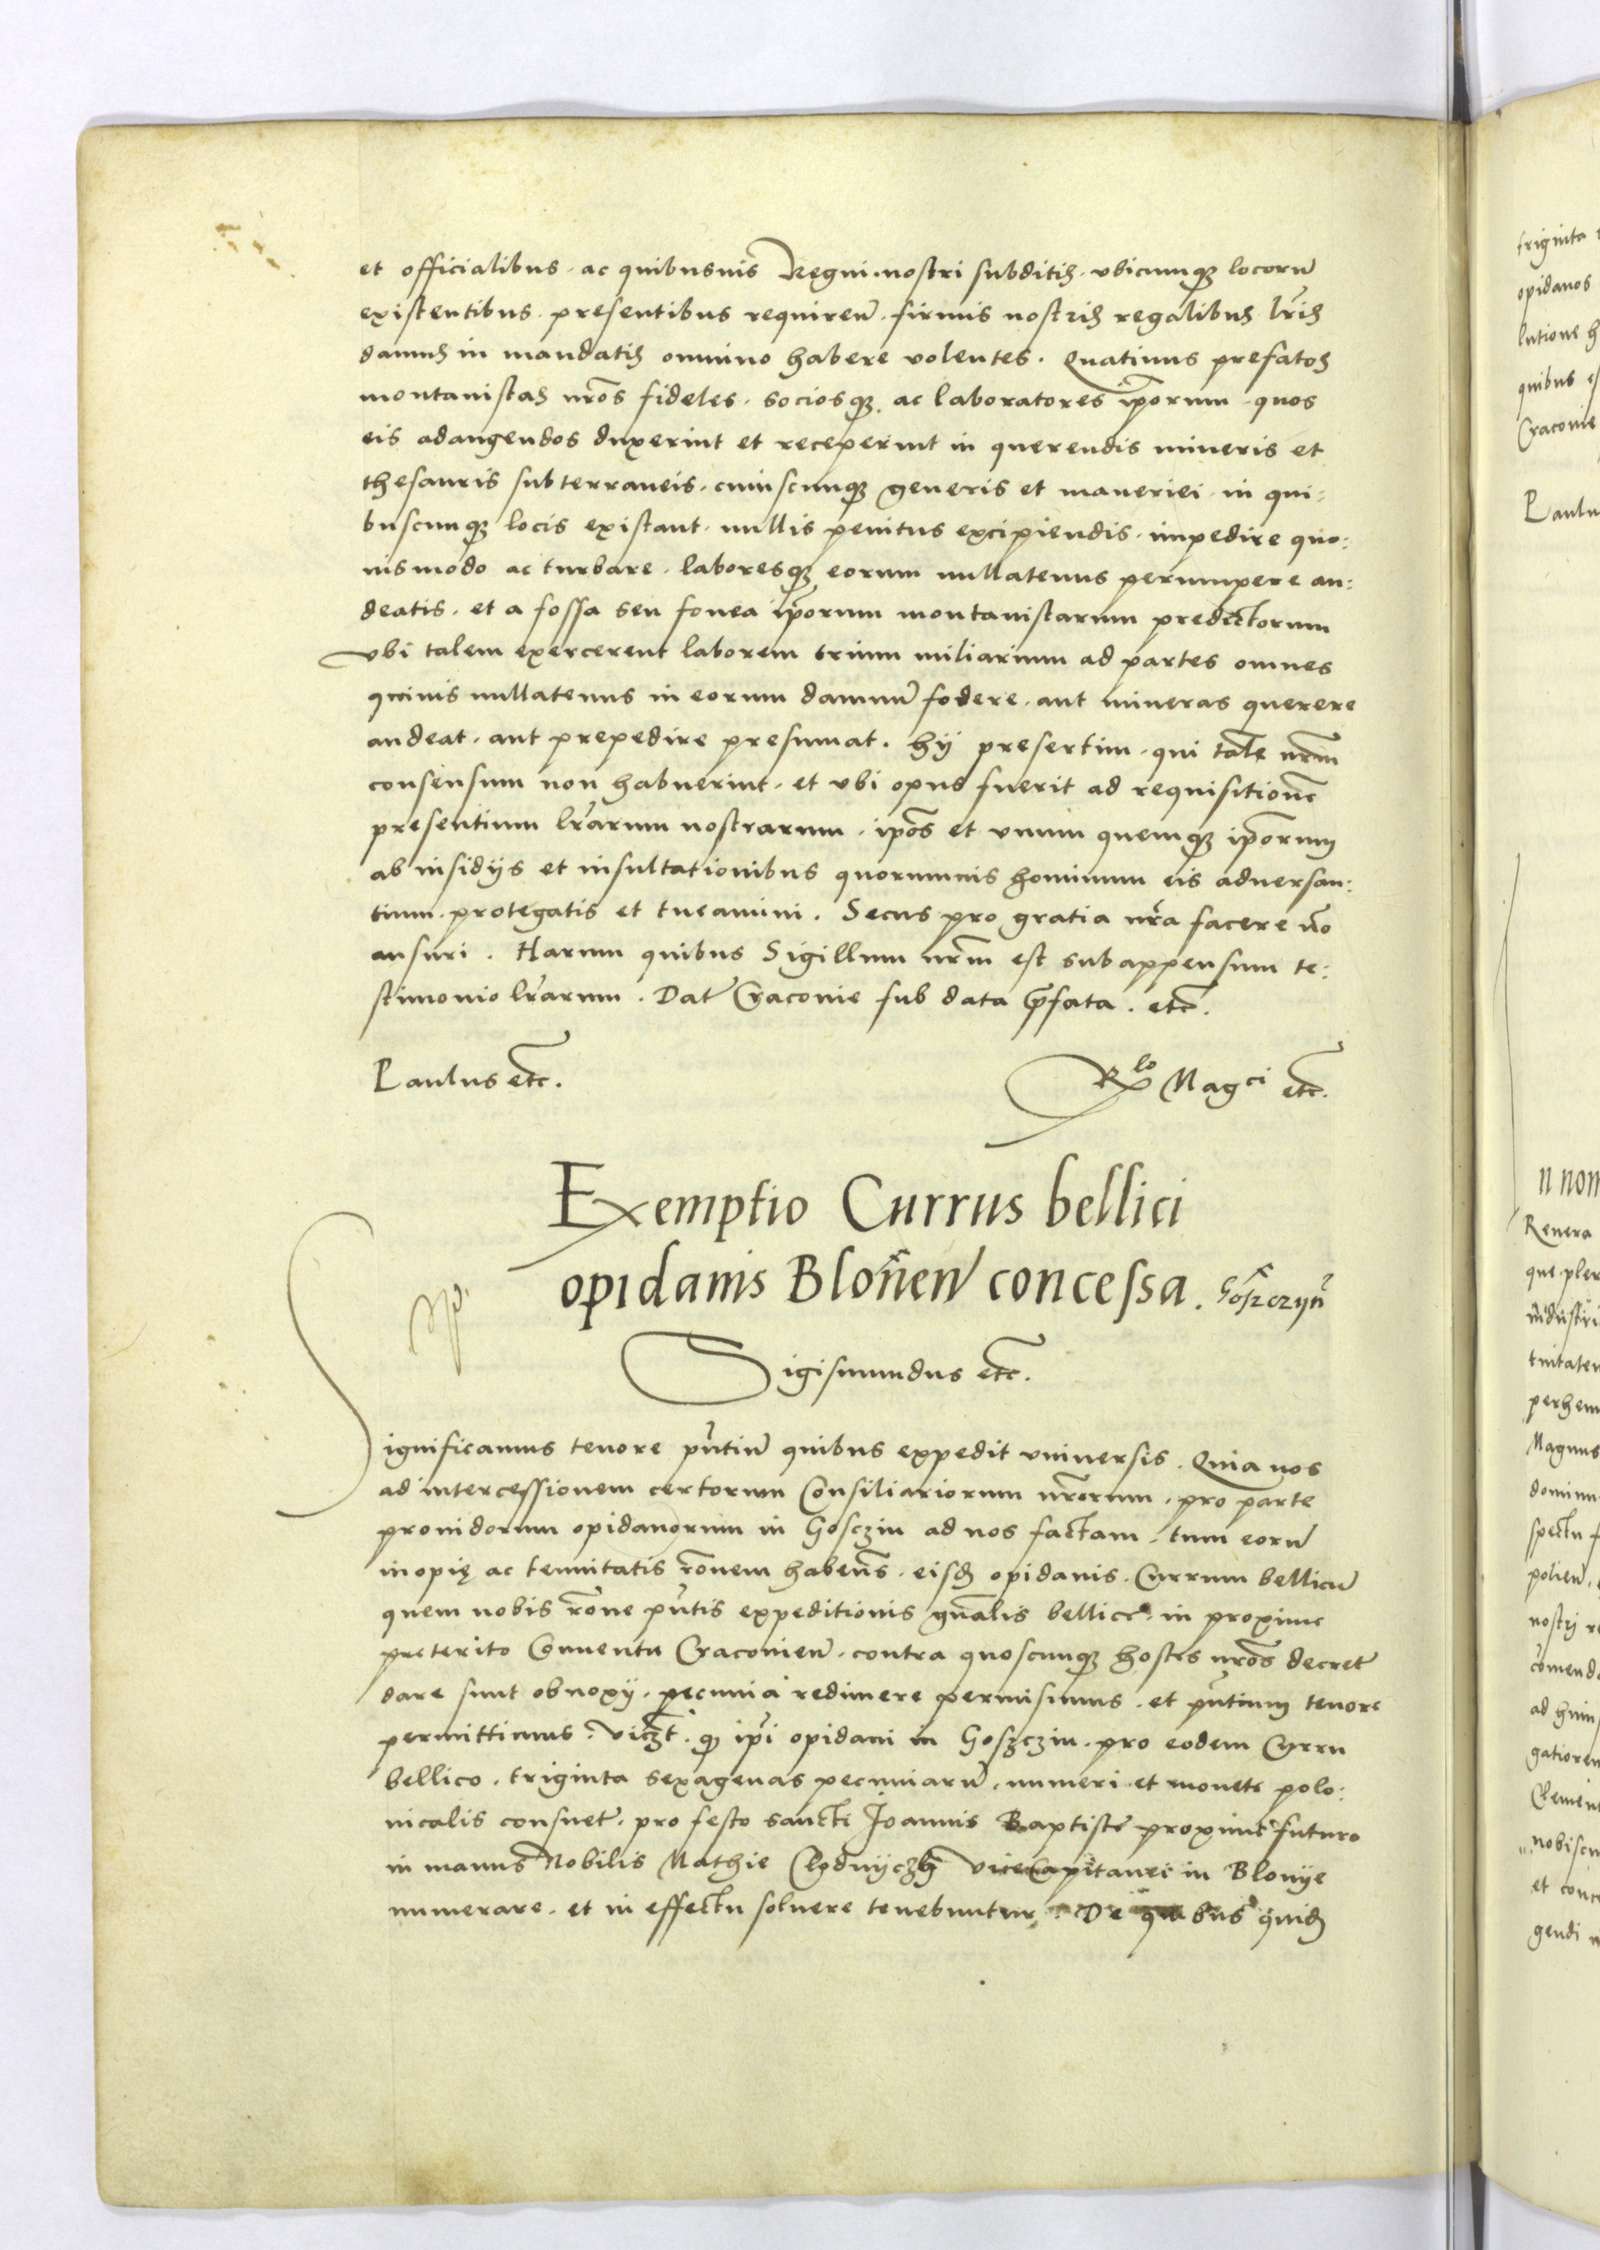 et officialibus. ac quibusuis Regni. nostri subditis. vbicunq̃ locorũ
existentibus. presentibus requireñ. firmis nostris regalibus lr̃is
damus in mandatis omnino habere volentes. Quatinus prefatos
montanistas nr̃os fideles. sociosq̃. ac laboratores ip̃orum. quos
eis adaugendos duxerint et receperint in querendis mineris et
thesauris subterraneis. cuiuscunq̃ generis et maneriei. in qui:
buscunq̃ locis existant. nullis penitus excipiendis. impedire quo:
uismodo ac turbare. laboresq̃ eorum nullatenus perrumpere au:
deatis. et a fossa seu fouea ip̃orum montanistarum predictorum
vbi talem exercerent laborem trium miliarium ad partes omnes
quiuis nullatenus in eorum damnũ fodere. aut mineras querere
audeat. aut prepedire presumat. hij presertim. qui talẽ nr̃m
consensum non habuerint. et vbi opus fuerit ad requisitionẽ
presentium lr̃arum nostrarum. ip̃os et vnum quemq̃ ip̃orum
ab insidijs et insultationibus quorumuis hominum eis aduersan:
tium. protegatis et tueamini. Secus pro gratia nr̃a facere nõ
ausuri. Harum quibus Sigillum nr̃m est subappensum te:
stimonio lr̃arum. Dat̃ Cracouie sub data p̃fata. etc̃.
Paulus etc̃.
R<sup>lo</sup> Mag<sup>ci</sup> etc̃.
Exemptio Currus bellici
opidanis Bloñeñ concessa. Goszczyñ
Sigismundus etc̃.
Significamus tenore pñtiũ quibus expedit vniuersis. Quia nos
ad intercessionem certorum Consiliariorum nr̃orum. pro parte
prouidorum opidanorum in Gosczin ad nos factam. tum eorũ
inopię ac tenuitatis rõnem habeñs. eisd̃ opidanis. Currum bellicũ
quem nobis rõne pñtis expeditionis gñalis bellice. in proxime
preterito Conuentu Cracouieñ. contra quoscunq̃ hostes nr̃os decret̃
dare sunt obnoxij. pecunia redimere permisimus. et pñtium tenore
permittimus. viczt̃. q̃ ip̃i opidani in Goszczin. pro eodem Curru
bellico. triginta sexagenas pecuniarũ. numeri et monete polo:
nicalis consuet̃. pro festo sancti Joannis Baptiste proxime futuro
in manus Nobilis Mathie viceCapitanei in Blonije
numerare. et in effectu soluere tenebuntur. De quibus quid̃
triginta
opidanos
lutione h
quibus es
Cracouie
Paulu
n nom
Reuera
que pler
industri
tuitatem
perhem
Magnus
dominu
spectu f
polieñ.
nostri r
com̃enda
ad huius
gatiorem
Clement
nobiscu
et conc
gendi